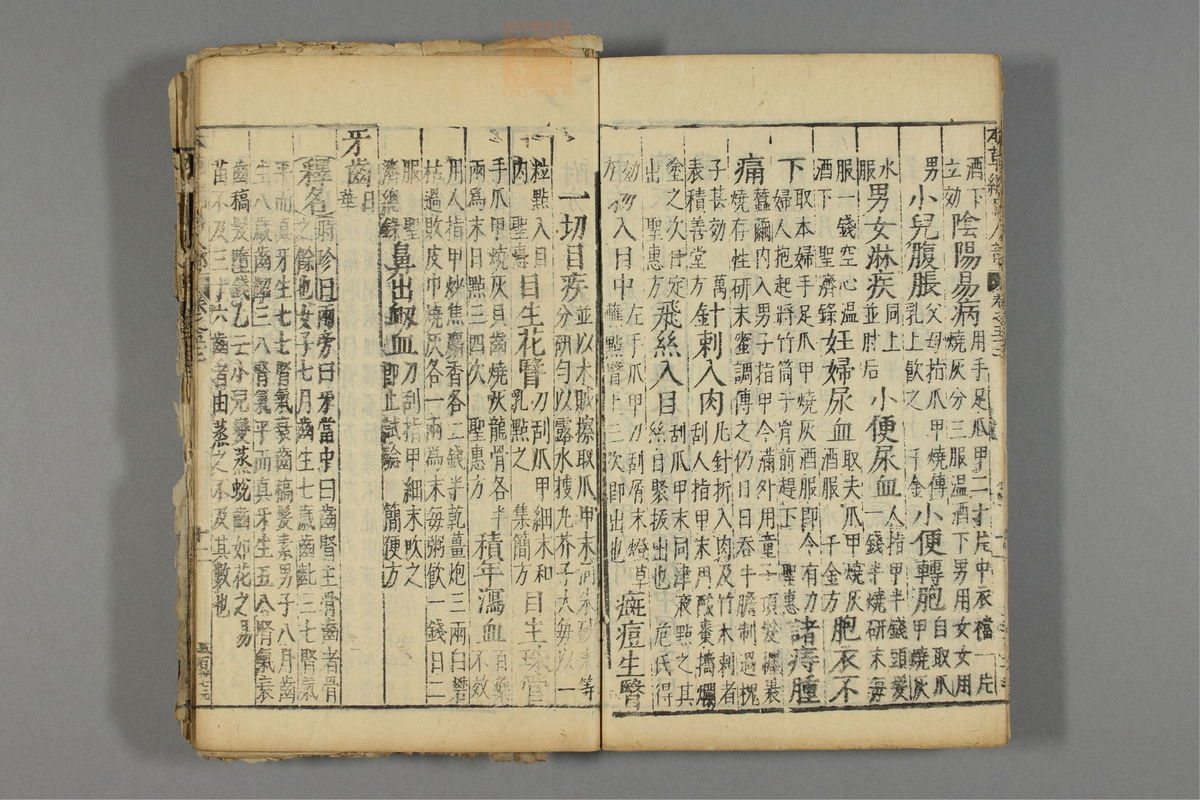 酒下
立効
陰陽易病
用手足爪甲二十片中衣襠一片
燒灰分三服温酒下男用女女用
男
小兒腹脹
父母指爪甲燒傅
乳上飲之 千金
小便轉胞
自取爪
甲燒灰
水
服
男女淋疾
同上
並肘后
小便尿血
人指甲半錢頭髮
一錢半燒研末每
服一錢空心温
酒下 聖濟錄
妊婦尿血
取夫爪甲燒灰
酒服 千金方
胞衣不
下
取本婦手足爪甲燒灰酒服即令有力
婦人抱起將竹筒于胷前趕下 聖惠
諸痔腫
痛
蠶繭内入男子指甲令滿外用童子頂髮纏裹
燒存性研末蜜調傅之仍日日吞牛膽制過槐
子甚効 萬
表積善堂方
針刺入肉
凡針折入肉及竹木刺者
刮人指甲末用酸棗擣爛
塗之次日定
出 聖惠方
飛絲入目
刮爪甲末同津液點之其
絲自聚拔出也 危氏得
効
方
物入目中
左手爪甲刀刮屑末燈草
蘸點瞖上三次即出也
癍痘生瞖
一切目疾
並以木賊擦取爪甲末同朱砂末等
分研勻以露水搜丸芥子大每以一
粒點入目
内 聖惠
目生花瞖
刀刮爪甲細末和
乳點之 集簡方
目生珠管
手爪甲燒灰貝齒燒灰龍骨各半
兩爲末日點三四次 聖惠方
積年瀉血
百藥
不效
用人指甲炒焦麝香各二錢半乾薑炮三兩白礬
枯過敗皮巾燒灰各一兩為末每粥飲一錢日二
服 聖
濟總錄
鼻出衄血
刀刮指甲細末吹之
即止試驗 簡便方
牙齒
日
華
釋名
時珍曰兩旁曰牙當中曰齒腎主骨齒者骨
之餘也女子七月齒生七歲齒齔三七腎氣
平而真牙生七七腎氣衰齒稿髮素男子八月齒
生八歲齒齠三八腎氣平而真牙生五八腎氣衰
齒稿髮墮錢乙云小兒變蒸蛻齒如花之易
苗不及三十六齒者由蒸之不及其數也